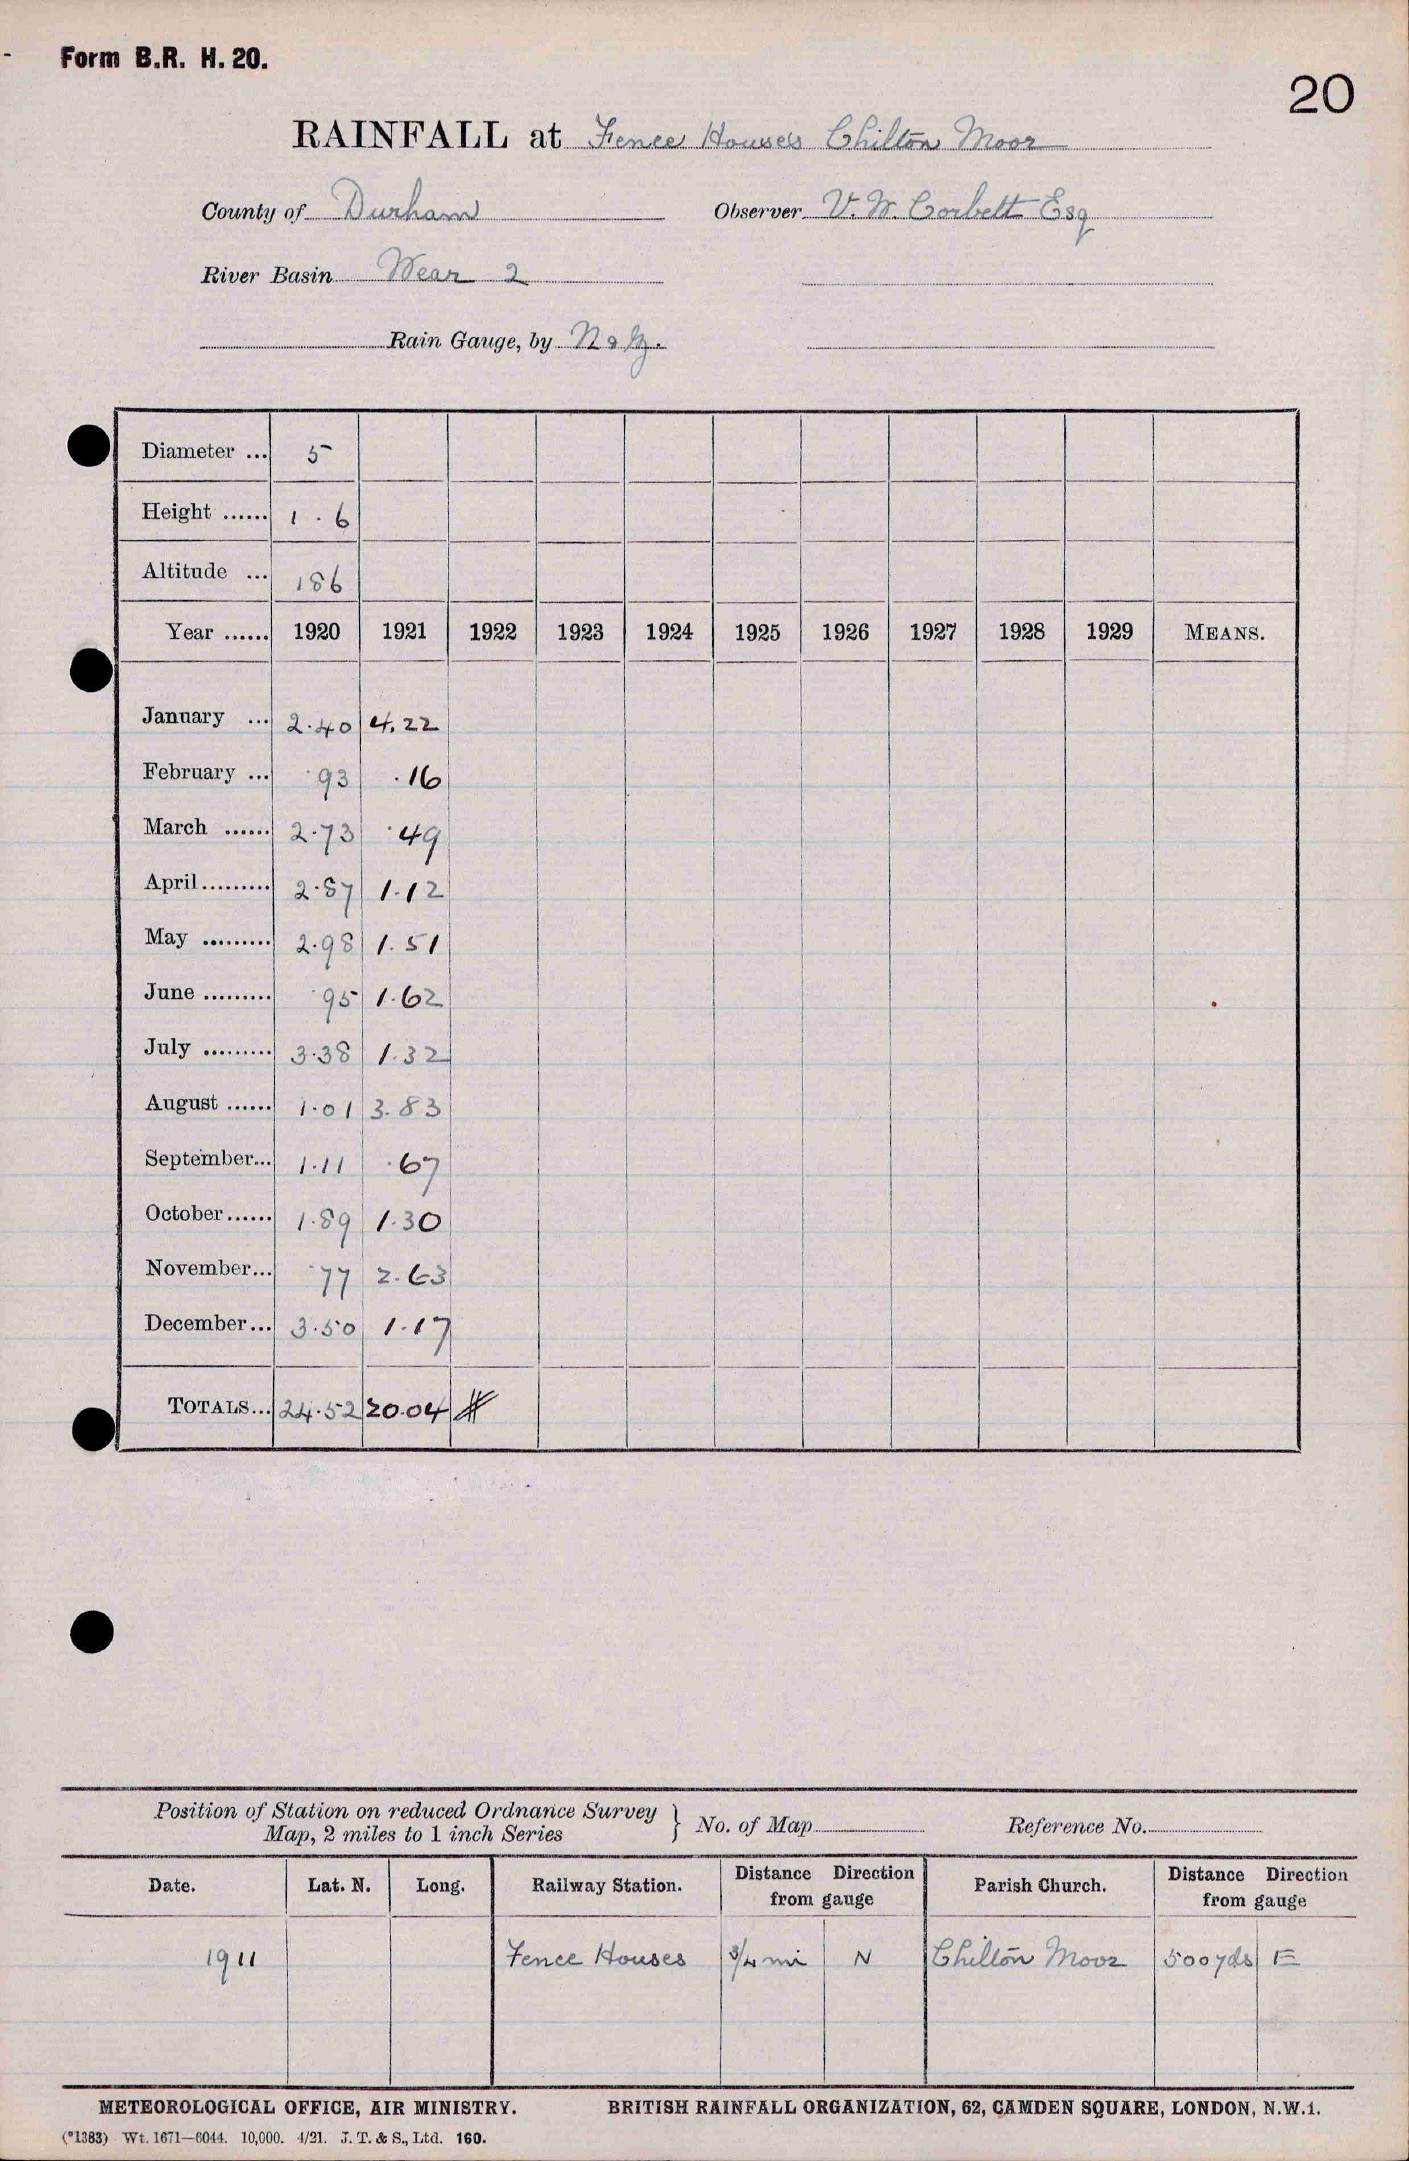 Form B.R. H. 20.
20
RAINFALL at Fence Houses Chilton Moor
County of Durham Observer V. W. Corbett Esq
River Basin Wear 2
Rain Gauge, by N & Z.
Diameter ... 5
Height ...... 1 . 6
Altitude ... 186
Year ...... 1920 1921 1922 1923 1924 1925 1926 1927 1928 1929 MEANS.
January ... 2.40 4.22
February ... .93 .16
March ...... 2.73 .49
April ......... 2.87 1.12
May ......... 2.98 1.51
June ......... .95 1.62
July ......... 3.38 1.32
August ...... 1.01 3.83
September... 1.11 .67
October ...... 1.89 1.30
November... .77 2.63
December... 3.50 1.17
TOTALS... 24.52 20.04
Position of Station on reduced Ordnance Survey
Map, 2 miles to 1 inch Series } No. of Map Reference No.
Date. Lat. N. Long. Railway Station. Distance Direction from gauge Parish Church. Distance Direction from gauge
1911 Fence Houses 3/4 mi N Chilton Moor 500 yds E
METEOROLOGICAL OFFICE, AIR MINISTRY. BRITISH RAINFALL ORGANIZATION, 62, CAMDEN SQUARE, LONDON, N.W.1.
(*1383) Wt. 1671—6044. 10,000. 4/21. J. T. & S., Ltd. 160.